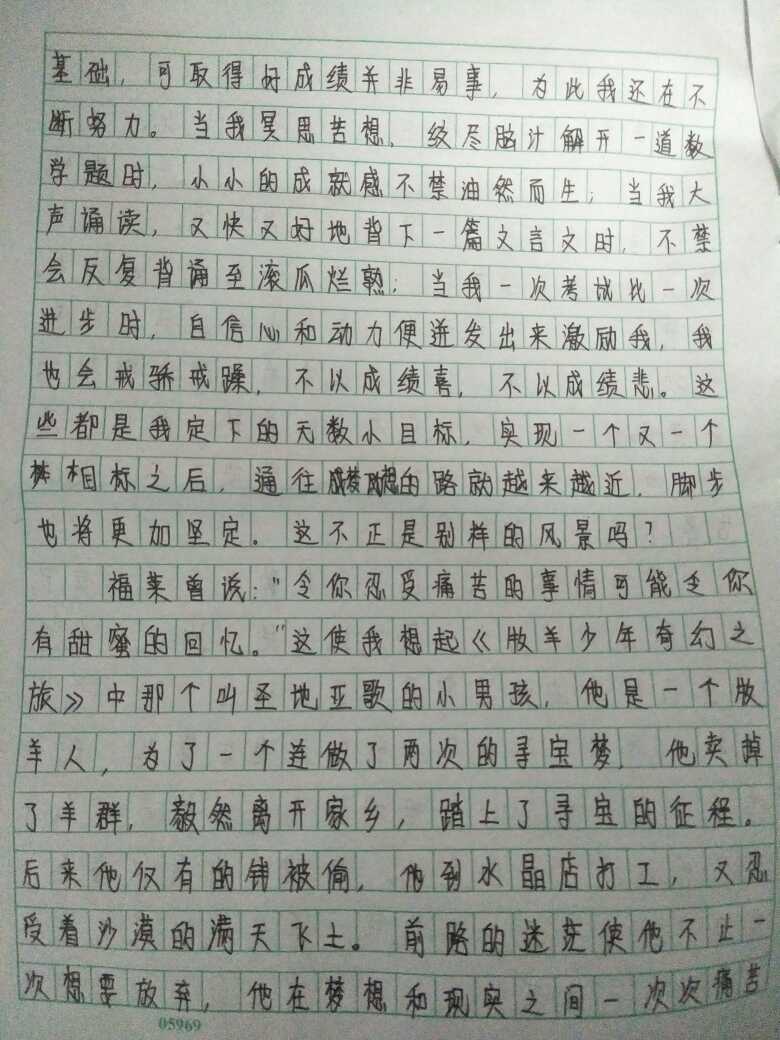 基础，可取得好成绩并非易事，为此我还在不
断努力。当我冥思苦想，绞尽脑汁解开一道数
学题时，小小的成就感不禁油然而生；当我大
声诵读，又快又好地背下一篇文言文时，不禁
会反复背诵至滚瓜烂熟；当我一次考试比一次
进步时，自信心和动力便迸发出来激励我，我
也会戒骄戒躁，不以成绩喜，不以成绩悲。这
些都是我定下的无数小目标，实现一个又一个
目标之后，通往梦想的路就越来越近，脚步
也将更加坚定。这不正是别样的风景吗？
福莱曾说：“令你忍受痛苦的事情可能令你
有甜蜜的回忆。”这使我想起《牧羊少年奇幻之
旅》中那个叫圣地亚歌的小男孩，他是一个牧
羊人，为了一个连做了两次的寻宝梦，他卖掉
了羊群，毅然离开家乡，踏上了寻宝的征程。
后来他仅有的钱被偷，他到水晶店打工，又忍
受着沙漠的满天飞土。前路的迷茫使他不止一
次想要放弃，他在梦想和现实之间一次次痛苦
05969